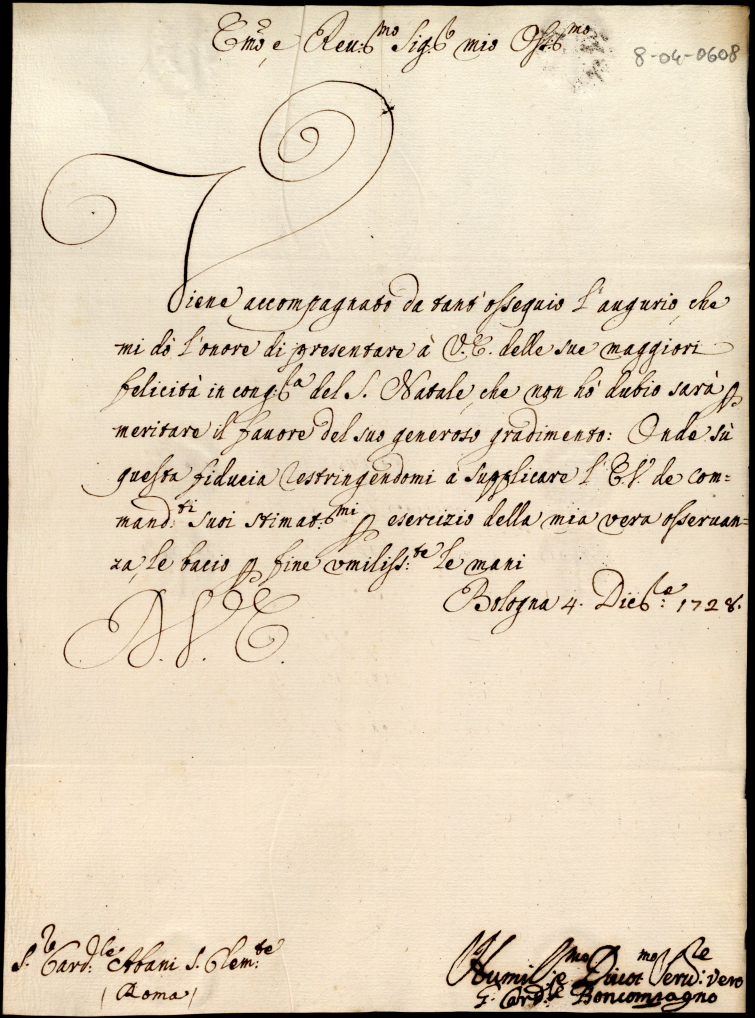 Emo, e Reu:mo Sig:r mio Oss:mo
8-04-0608
Viene accompagnato da tant'ossequio l'augurio, che
mi dò l'onore di presentare à V.E. delle sue maggiori
felicità in cong:za del S. Natale, che non hò dubio sarà p
meritare il fauore del suo generoso gradimento: Onde sù
questa fiducia restringendomi a supplicare l'E.V. de com=
mand:ti suoi stimat:mi p esercizio della mia vera osseruan=
za, le bacio p fine vmiliss:te le mani
D. V. E.
Bologna 4. Dic:e 1728.
S.r Card:le Albani S. Clem:te
(Roma)
Humil:mo e Diuot:mo Seru:re vero
G. Card:le Boncompagno